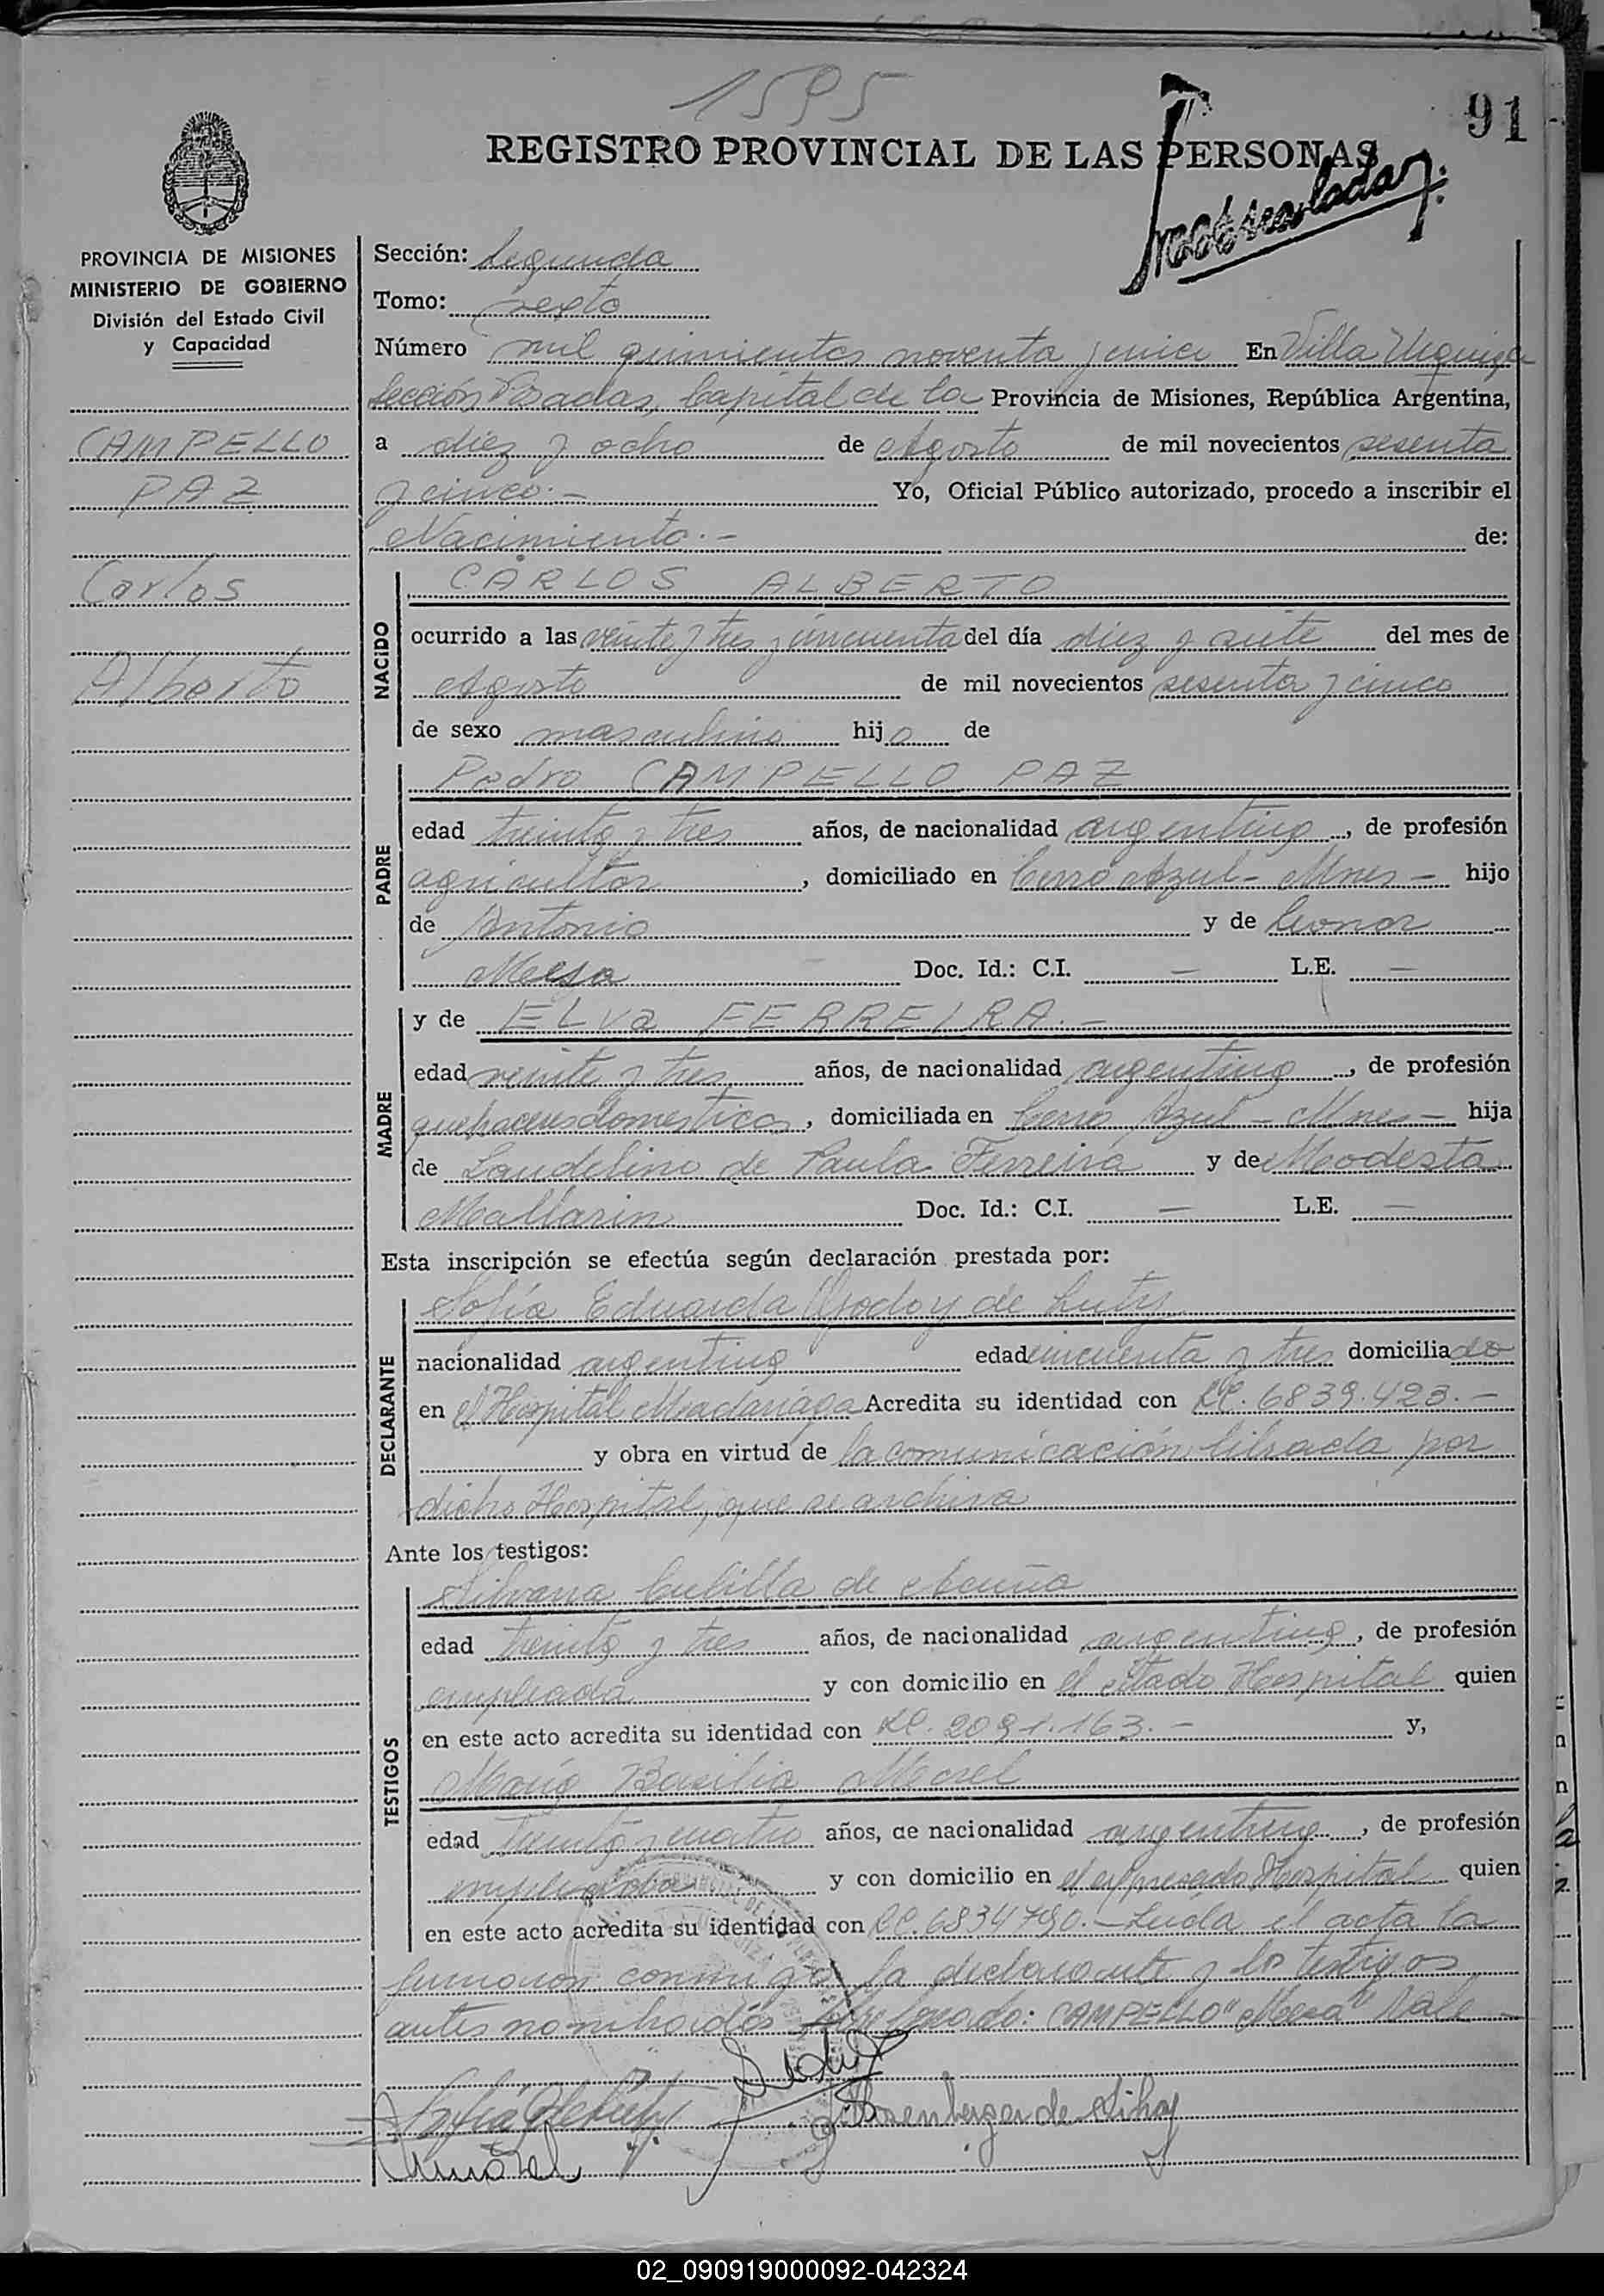 1595
91
REGISTRO PROVINCIAL DE LAS PERSONAS
PROVINCIA DE MISIONES
MINISTERIO DE GOBIERNO
División del Estado Civil
y Capacidad
CAMPELLO
PAZ
Carlos
Alberto
Sección: Segunda
Tomo: sexto
Número mil quinientos noventa y cinco En Villa Urquiza
Sección Posadas, Capital de la Provincia de Misiones, República Argentina,
a diez y ocho de Agosto de mil novecientos sesenta
y cinco.- Yo, Oficial Público autorizado, procedo a inscribir el
Nacimiento.- de:
NACIDO
CARLOS ALBERTO
ocurrido a las veinte y tres y cincuenta del día diez y siete del mes de
Agosto de mil novecientos sesenta y cinco
de sexo masculino hijo de
PADRE
Pedro CAMPELLO PAZ
edad treinta y tres años, de nacionalidad argentino, de profesión
agricultor, domiciliado en Cerro Azul - Mnes - hijo
de Antonio y de Leonor
Meza Doc. Id.: C.I. — L.E. —
MADRE
y de ELVa FERREIRA.-
edad veinte y tres años, de nacionalidad argentina, de profesión
quehaceres domesticos, domiciliada en Cerro Azul - Mnes - hija
de Laudelino de Paula Ferreira y de Modesta
Mallarin Doc. Id.: C.I. — L.E. —
Esta inscripción se efectúa según declaración prestada por:
DECLARANTE
Sofía Eduarda Godoy de
nacionalidad argentina edad cincuenta y tres domiciliado
en el Hospital Madariaga Acredita su identidad con LC. 6839.423.-
y obra en virtud de la comunicación librada por
dicho Hospital, que se archiva
Ante los testigos:
TESTIGOS
Silvana Cubilla de Acuña
edad treinta y tres años, de nacionalidad argentina, de profesión
empleada y con domicilio en el citado Hospital quien
en este acto acredita su identidad con LC. 2091.163.- y,
María Basilia Morel
edad treinta y cuatro años, de nacionalidad argentina, de profesión
empleada y con domicilio en el expresado Hospital quien
en este acto acredita su identidad con LC. 6834790.- Leída el acta la
firmaron conmigo la declarante y los testigos
antes nombrados. Sobre borrado: CAMPELLO "Meza" Vale -
02_090919000092-042324